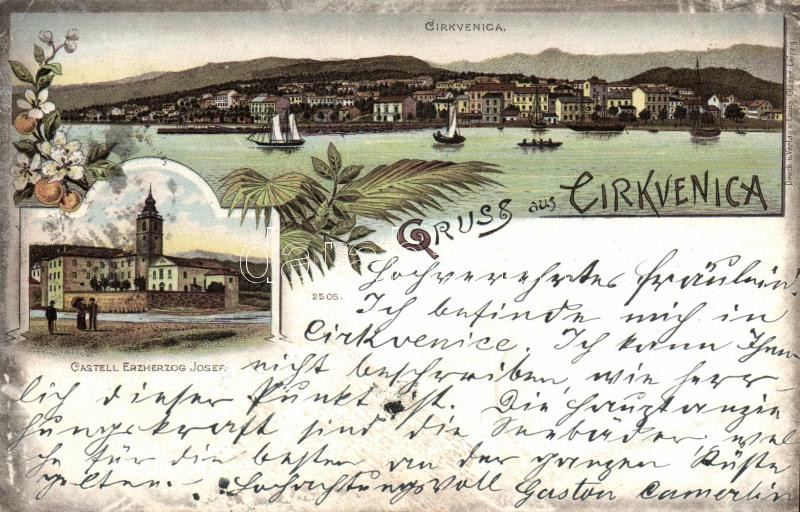 CIRKVENICA,
Druck u. Verlag v. Louis Glaser, Leipzig.
GRUSS aus CIRKVENICA
2505.
CASTELL ERZHERZOG JOSEF.
Hochverehrtes Fräulein!
Ich befinde mich in
Cirkvenice. Ich kann Ihnen
nicht beschreiben, wie herr-
lich dieser Punkt ist. Die Hauptanzie
hungskraft sind die Seebäder, wel
che für die besten an der ganzen Küste
gelten. - Hochachtungsvoll Gaston Camerlin